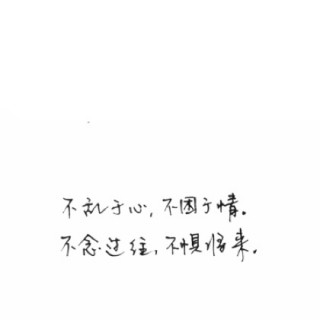 不乱于心,不困于情。
不念过往,不惧将来。